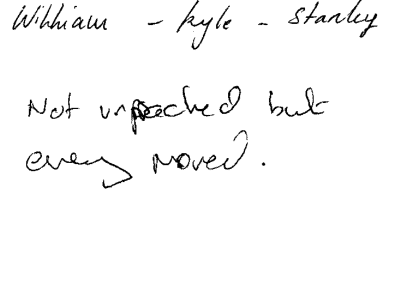 William - Kyle - Stanley
Not unpacked but
every moved.